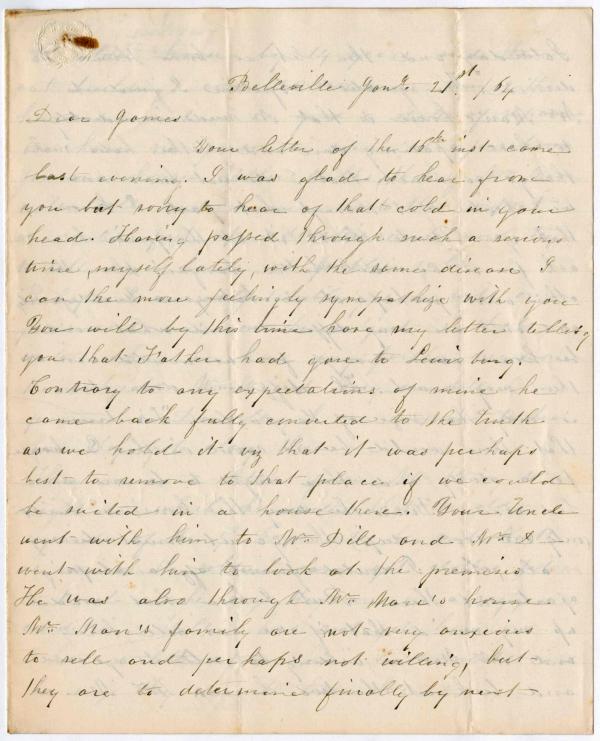 Belleville Jany. 21st /64
Dear James
Your letter of the 15th inst came
last evening. I was glad to hear from
you but sorry to hear of that cold in your
head. Having passed through such a serious
time, myself lately, with the same disease I
can the more feelingly sympathize with you
You will by this time have my letter telling
you that Father had gone to Lewisburg.
Contrary to any expectations of mine he
came back fully converted to the truth
as we hold it viz that it was perhaps
best to remove to that place if we could
be suited in a house there. Your Uncle
went with him to Mr. Dill and Mr. D
went with him to look at the premises
He was also through Mr. Marr's house
Mr. Marr's family are not very anxious
to sell and perhaps not willing, but
they are to determine finally by next